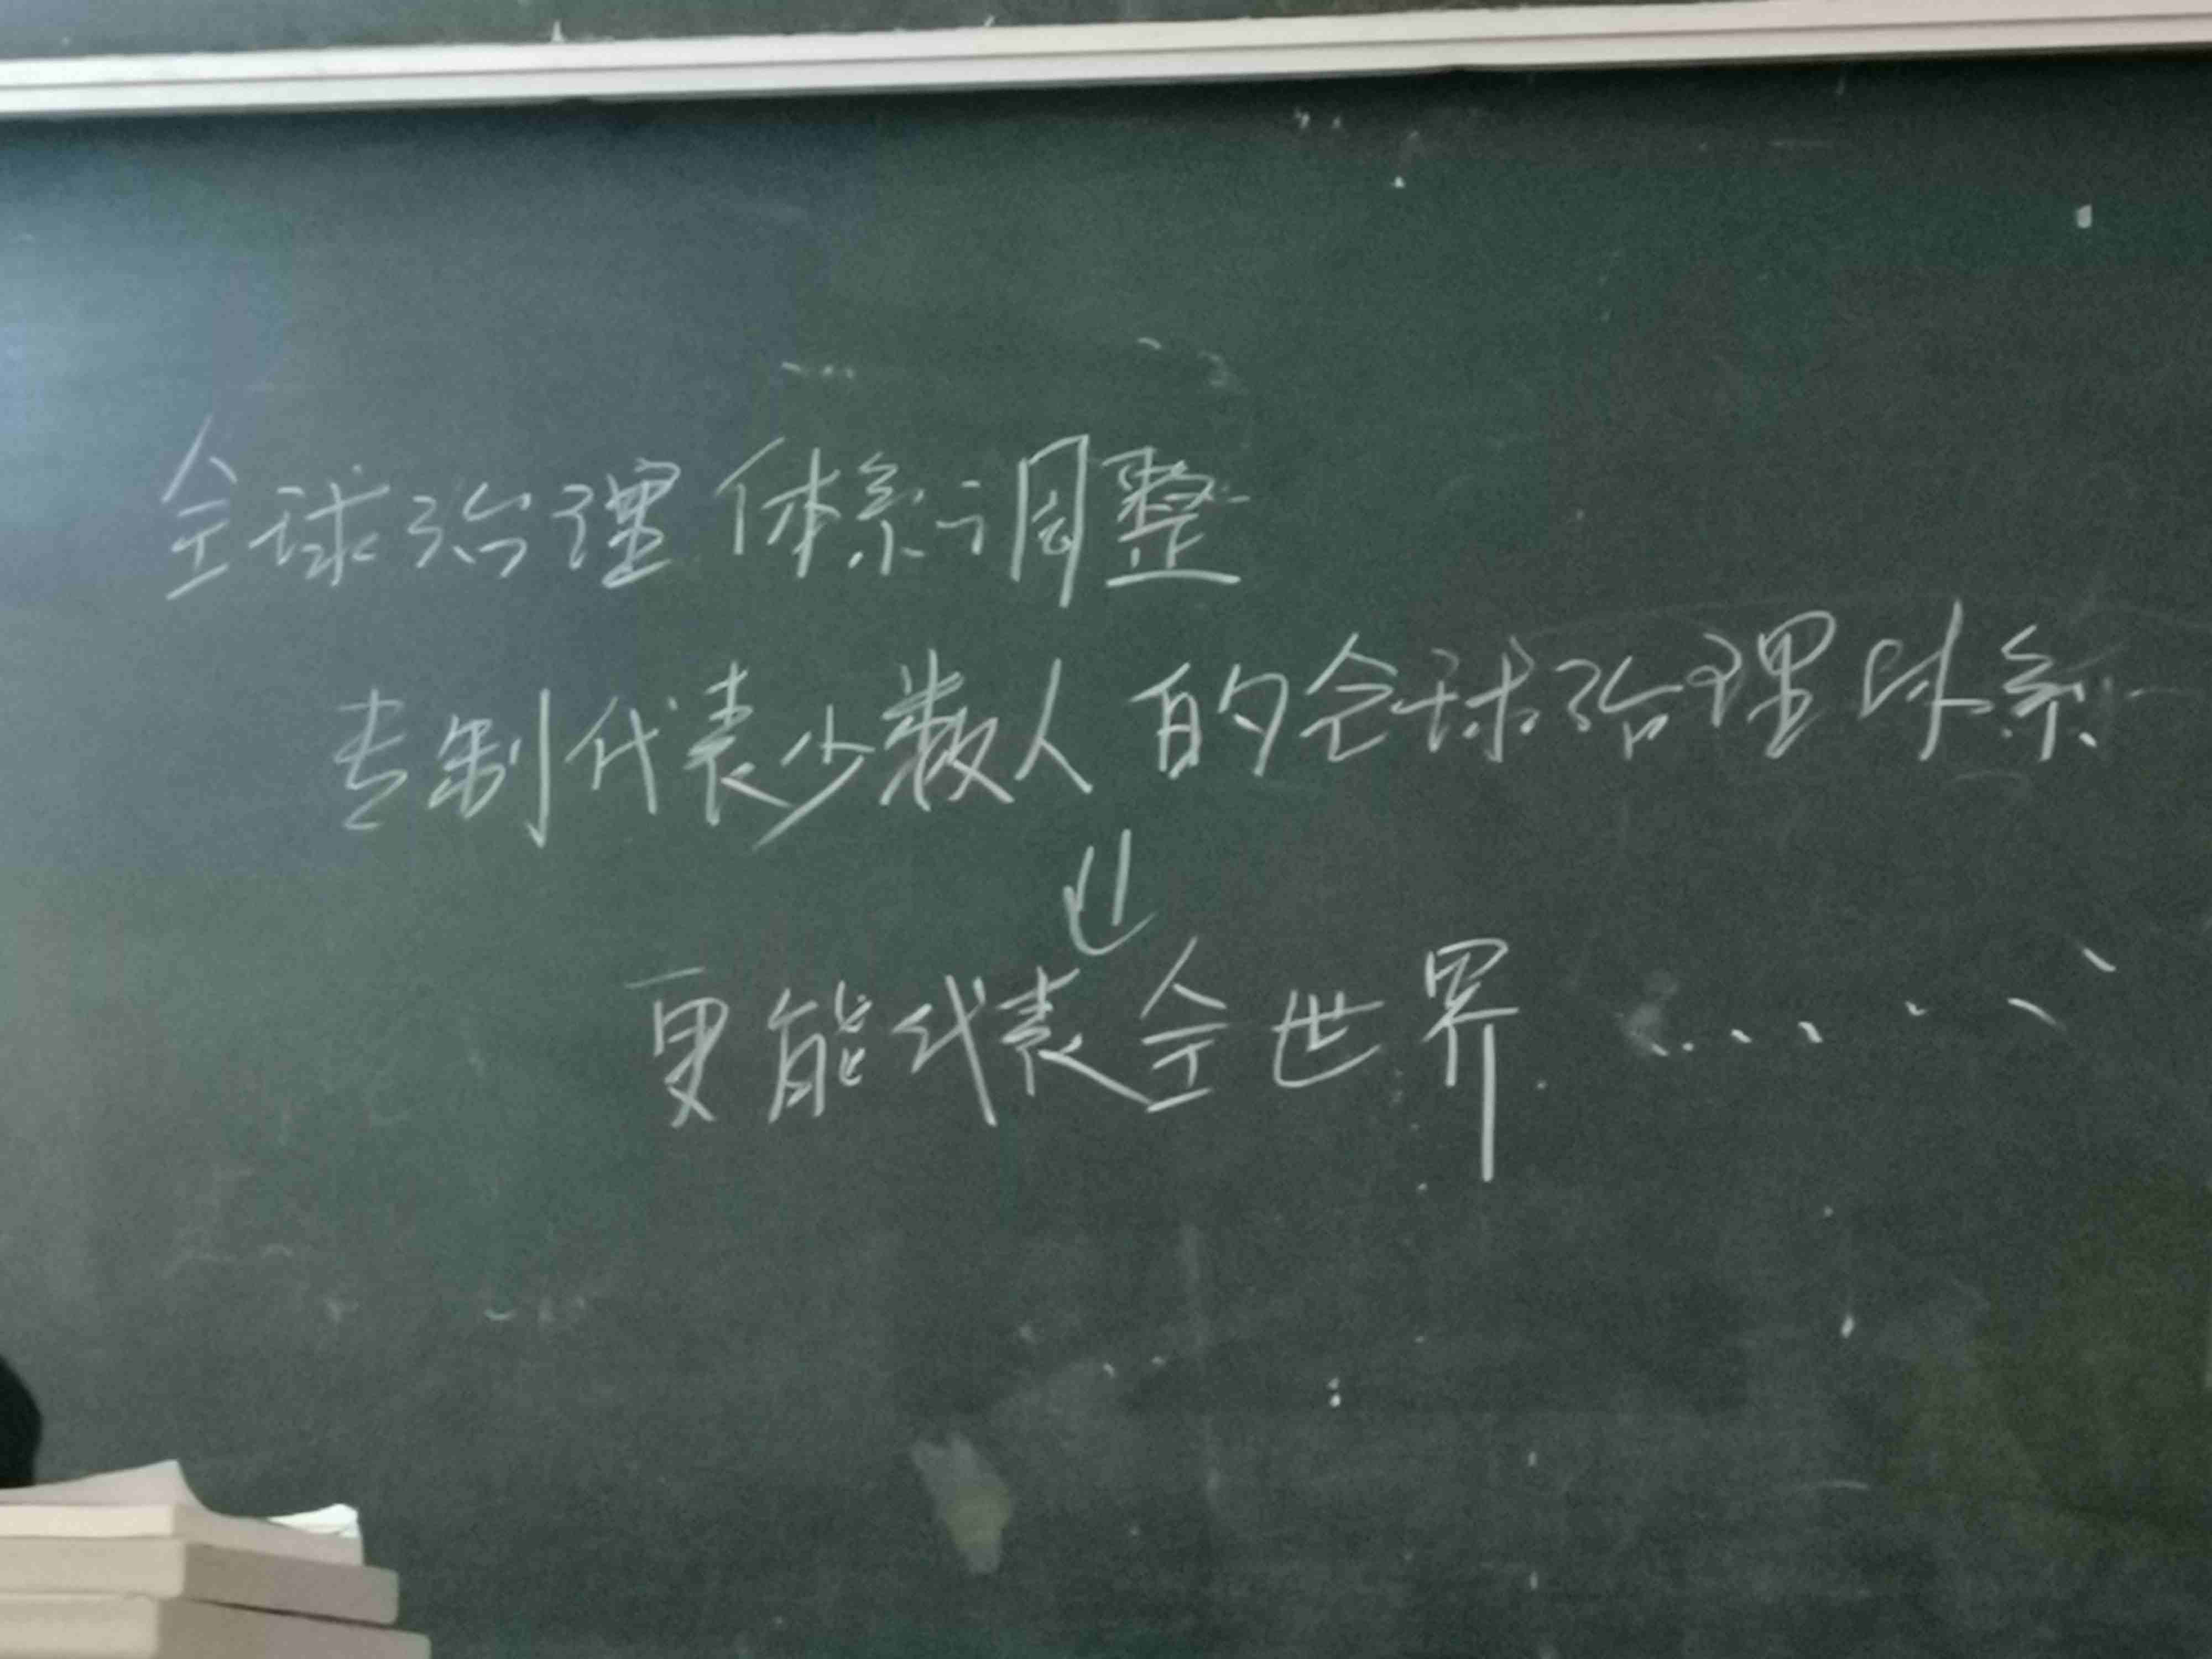 全球治理体系调整
专制代表少数人的全球治理体系
⇓
更能代表全世界......